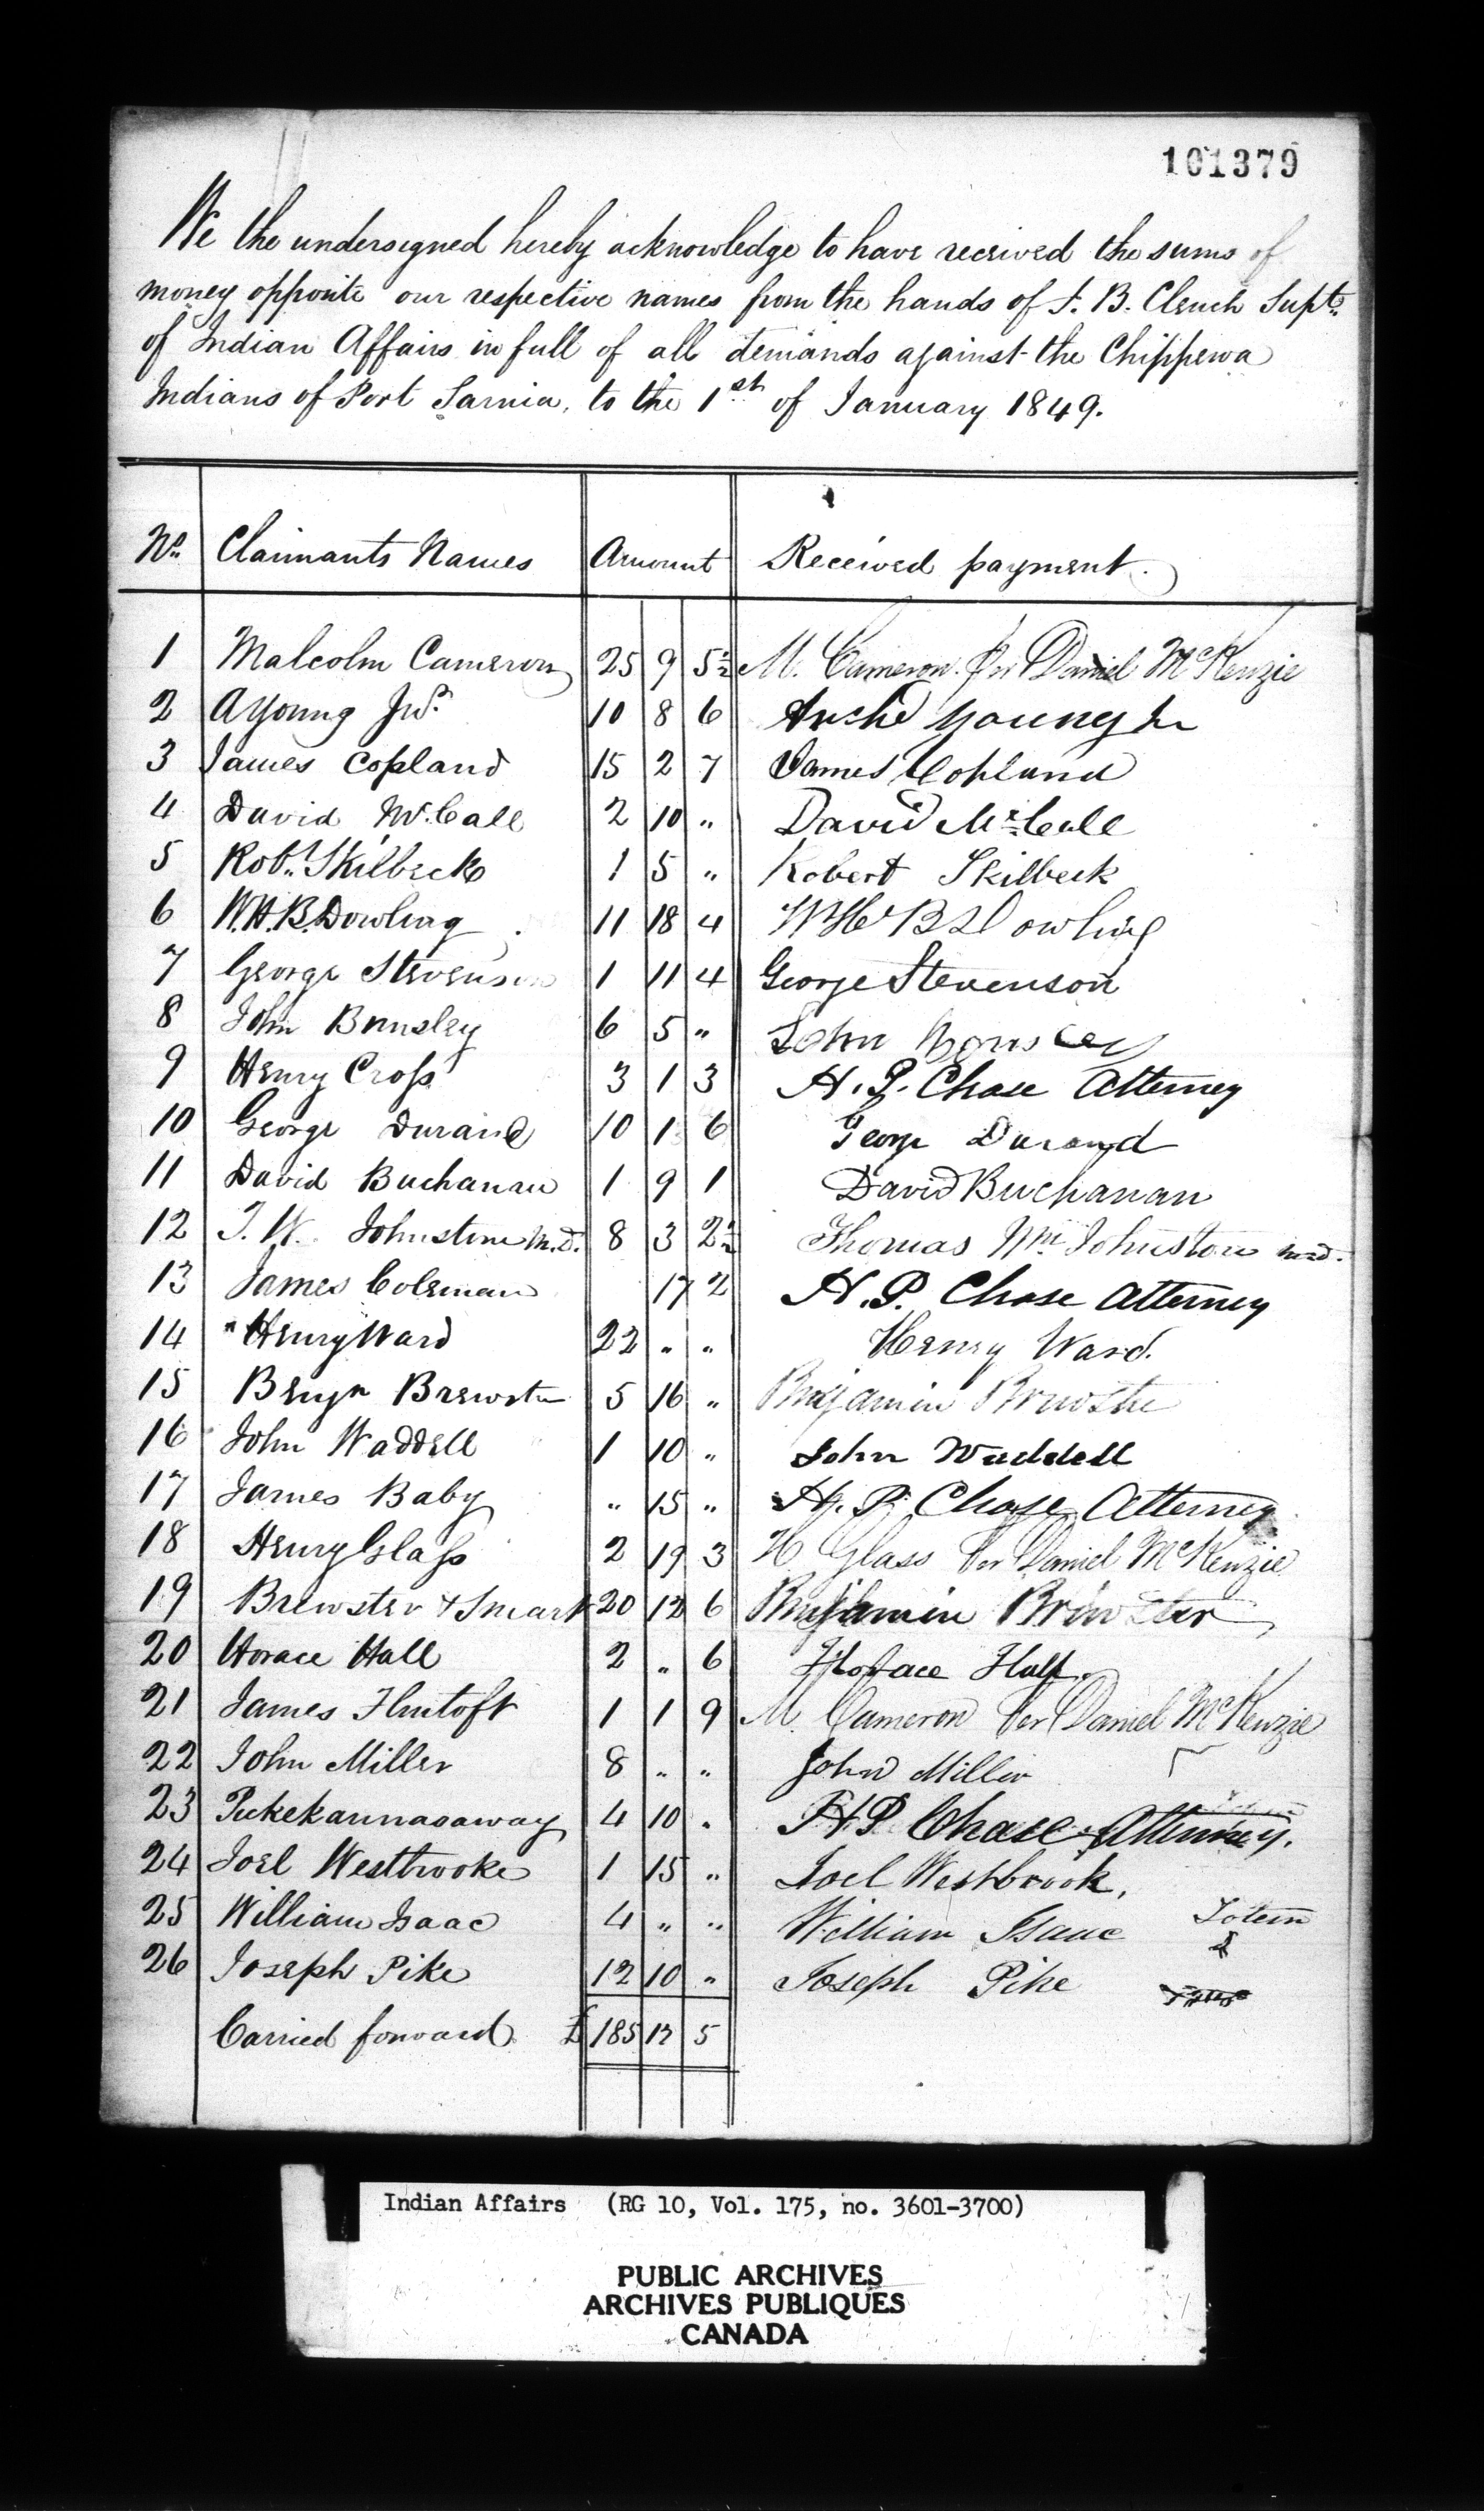 101379
We the undersigned hereby acknowledge to have received the sums of
money opposite our respective names from the hands of J. B. Clench Supt.
of Indian Affairs in full of all demands against the Chippewa
Indians of Port Sarnia, to the 1st of January 1849.
No. Claimants Names Amount Received payment.
1 Malcolm Cameron 25 9 5½ M. Cameron. Per Daniel McKenzie
2 A Young Junr. 10 8 6 Archd Young Jr
3 James Copland 15 2 7 James Copland
4 David McCall 2 10 " David McCall
5 Robt. Skilbeck 1 5 " Robert Skilbeck
6 W.H.B. Dowling 11 18 4 WH B Dowling
7 George Stevenson 1 11 4 George Stevenson
8 John 6 5 " John
9 Henry Cross 3 1 3 H. P. Chase Attorney
10 George Durand 10 1 6 George Durand
11 David Buchanan 1 9 1 David Buchanan
12 T. W. Johnstone M.D. 8 3 2½ Thomas Wm Johnston M.D.
13 James Coleman 17 2 H. P. Chase Attorney
14 Henry Ward 22 " " Henry Ward.
15 Benjn Brewster 5 16 " Benjamin Brewster
16 John Waddell 1 10 " John Waddell
17 James Baby " 15 " H. P. Chase Attorney
18 Henry Glass 2 19 3 H Glass Per Daniel McKenzie
19 Brewster & Smart 20 12 6 Benjamin Brewster
20 Horace Hall 2 " 6 Horace Hall.
21 James Flintoft 1 1 9 M. Cameron Per Daniel McKenzie
22 John Miller 8 " " John Miller
23 Puckekannasaway 4 10 " H P Chase Attorney.
24 Joel Westbrooke 1 15 " Joel Westbrook.
25 William Isaac 4 " " William Isaac Totem
26 Joseph Pike 12 10 " Joseph Pike
Carried forward £ 185 12 5
Indian Affairs (RG 10, Vol. 175, no. 3601-3700)
PUBLIC ARCHIVES
ARCHIVES PUBLIQUES
CANADA